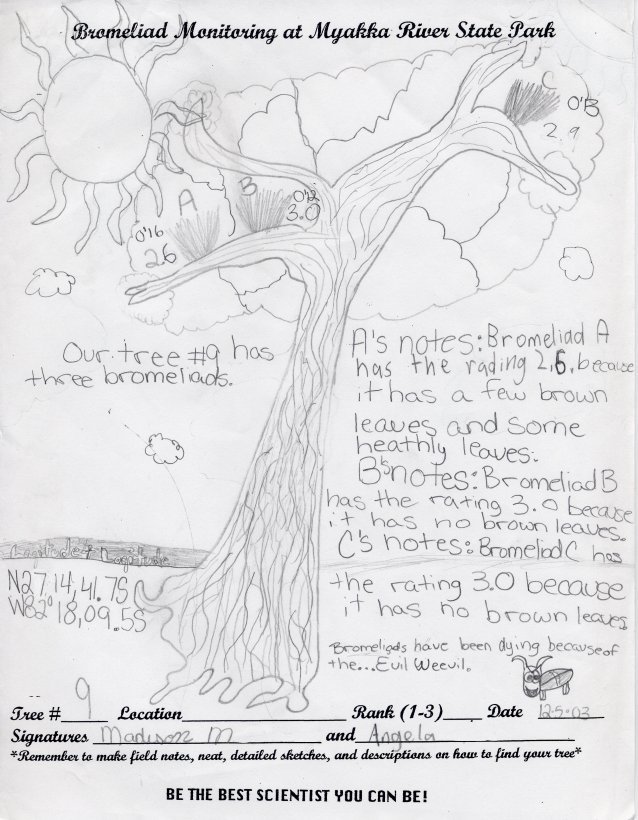 Bromeliad Monitoring at Myakka River State Park
C
O'B
2.9
A
B
O'12
3.0
O'16
2.6
Our tree #9 has
three bromeliads.
A's notes: Bromeliad A
has the rading 2.6, because
it has a few brown
leaves and some
heathly leaves.
B's notes: Bromeliad B
has the rating 3.0 because
it has no brown leaves.
C's notes: Bromeliad C has
the rating 3.0 because
it has no brown leaves
Bromeliads have been dying because of
the...Evil Weevil.
N27°14,41.7S
W82°18,09.5S
Tree # 9 Location Rank (1-3) Date 12-5-03
Signatures Madison M and Angela
*Remember to make field notes, neat, detailed sketches, and descriptions on how to find your tree*
BE THE BEST SCIENTIST YOU CAN BE!